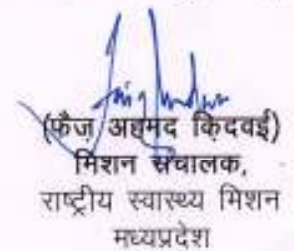 (फैज़ अहमद क़िदवई)
मिशन संचालक,
राष्ट्रीय स्वास्थ्य मिशन
मध्यप्रदेश